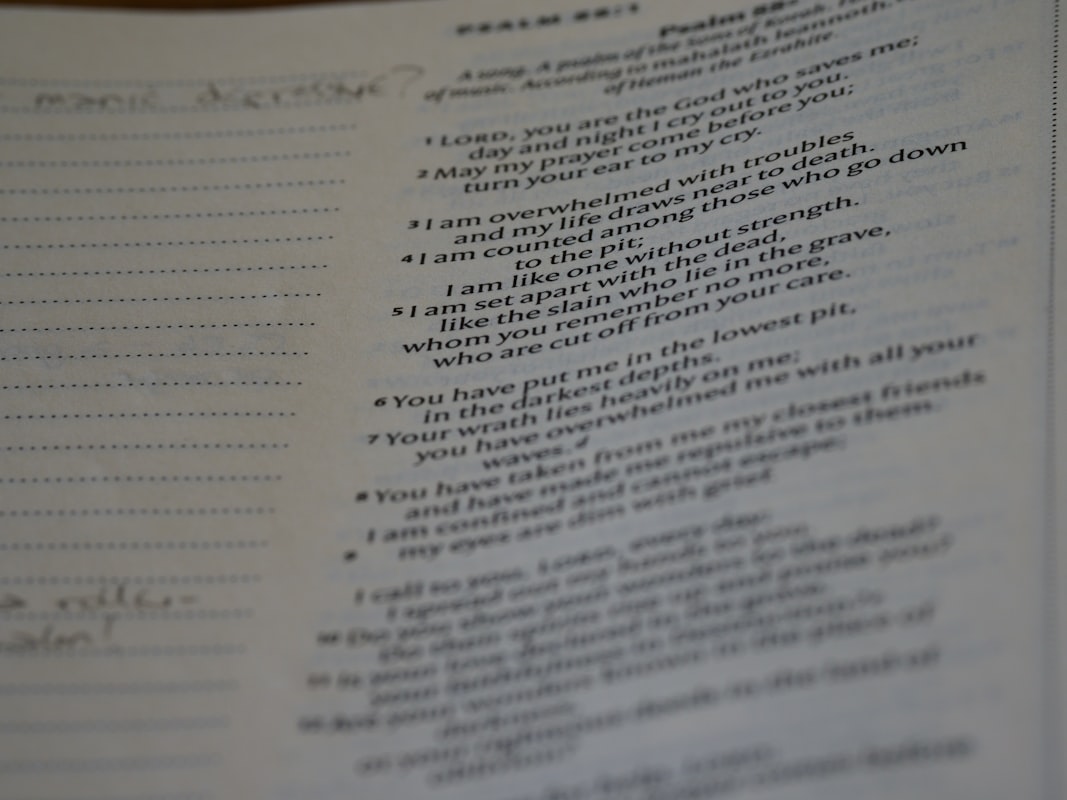 PSALM 88:1
manic depressive?
Psalm 88
A song. A psalm of the Sons of Korah.
of music. According to mahalath leannoth.
of Heman the Ezrahite.
1 LORD, you are the God who saves me;
day and night I cry out to you.
2 May my prayer come before you;
turn your ear to my cry.
3 I am overwhelmed with troubles
and my life draws near to death.
4 I am counted among those who go down
to the pit;
I am like one without strength.
5 I am set apart with the dead,
like the slain who lie in the grave,
whom you remember no more,
who are cut off from your care.
6 You have put me in the lowest pit,
in the darkest depths.
7 Your wrath lies heavily on me;
you have overwhelmed me with all your
waves. d
8 You have taken from me my closest friends
and have made me repulsive to them.
I am confined and cannot escape;
9 my eyes are dim with grief.
I call to you, LORD, every day;
I spread out my hands to you.
10 Do you show your wonders to the dead?
Do their spirits rise up and praise you?
11 Is your love declared in the grave,
your faithfulness in
12 Are your wonders known in the place of
darkness,
or your righteous deeds in the land of
oblivion?